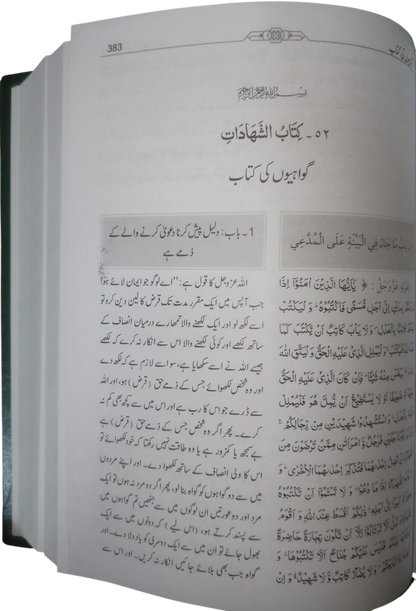 383
بسم الله الرحمن الرحيم
٥٢ - كِتَابُ الشَّهَادَاتِ
گواہیوں کی کتاب
1 - باب: دلیل پیش کرنا دعویٰ کرنے والے کے
ذمے ہے
اللہ عزوجل کا قول ہے: "اے لوگو جو ایمان لائے ہو!
جب آپس میں ایک مقرر مدت تک قرض کا لین دین کرو تو
اسے لکھ لو اور ایک لکھنے والا تمھارے درمیان انصاف کے
ساتھ لکھے اور کوئی لکھنے والا اس سے انکار نہ کرے کہ لکھے
جیسے اللہ نے اسے سکھایا ہے، سو اسے لازم ہے کہ لکھ دے
اور وہ شخص لکھوائے جس کے ذمے حق (قرض) ہو، اور اللہ
سے ڈرے جو اس کا رب ہے اور اس میں سے کچھ بھی کم نہ
کرے۔ پھر اگر وہ شخص جس کے ذمے حق (قرض) ہے
بے سمجھ یا کمزور ہے یا وہ طاقت نہیں رکھتا کہ خود لکھوائے تو
اس کا ولی انصاف کے ساتھ لکھوا دے۔ اور اپنے مردوں
میں سے دو گواہوں کو گواہ بنا لو، پھر اگر دو مرد نہ ہوں تو ایک
مرد اور دو عورتیں ان لوگوں میں سے جنھیں تم گواہوں میں
سے پسند کرتے ہو، (اس لیے) کہ دونوں میں سے ایک
بھول جائے تو ان میں سے ایک دوسری کو یاد دلا دے۔ اور
گواہ جب بھی بلائے جائیں انکار نہ کریں۔ اور اس سے
مَا جَاءَ فِي الْبَيِّنَةِ عَلَى الْمُدَّعِي
يَا أَيُّهَا الَّذِينَ آمَنُوا إِذَا
إِلَى أَجَلٍ مُسَمًّى فَاكْتُبُوهُ وَلْيَكْتُبْ
بِالْعَدْلِ وَلَا يَأْبَ كَاتِبٌ أَنْ يَكْتُبَ كَمَا
وَلْيُمْلِلِ الَّذِي عَلَيْهِ الْحَقُّ وَلْيَتَّقِ اللَّهَ
مِنْهُ شَيْئًا فَإِنْ كَانَ الَّذِي عَلَيْهِ الْحَقُّ
لَا يَسْتَطِيعُ أَنْ يُمِلَّ هُوَ فَلْيُمْلِلْ
وَاسْتَشْهِدُوا شَهِيدَيْنِ مِنْ رِجَالِكُمْ
فَرَجُلٌ وَامْرَأَتَانِ مِمَّنْ تَرْضَوْنَ مِنَ
إِحْدَاهُمَا فَتُذَكِّرَ إِحْدَاهُمَا الْأُخْرَى وَ
إِذَا مَا دُعُوا وَلَا تَسْأَمُوا أَنْ تَكْتُبُوهُ
ذَلِكُمْ أَقْسَطُ عِنْدَ اللَّهِ وَأَقْوَمُ
إِلَّا أَنْ تَكُونَ تِجَارَةً حَاضِرَةً
فَلَيْسَ عَلَيْكُمْ جُنَاحٌ أَلَّا تَكْتُبُوهَا وَ
وَلَا يُضَارَّ كَاتِبٌ وَلَا شَهِيدٌ وَإِنْ